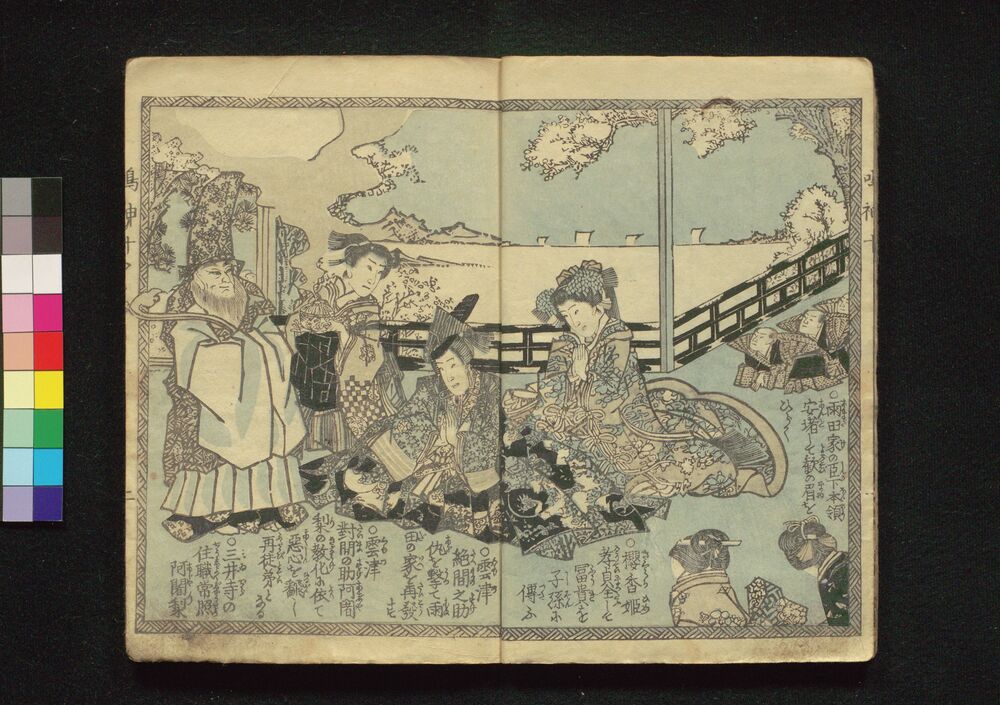 ○雨田家の臣下本領
安堵して歓の眉を
ひらく
○櫻香姫
孝貞全して
冨貴を
子孫に
傳ふ
○雲津
絶間之助
仇を撃て雨
田の家を再發
す
○雲津
對間の助阿闍
梨の教化に依て
惡心を飜し
再徒弟と
なる
○三井寺の
住職常照
阿闍梨
鳴神十